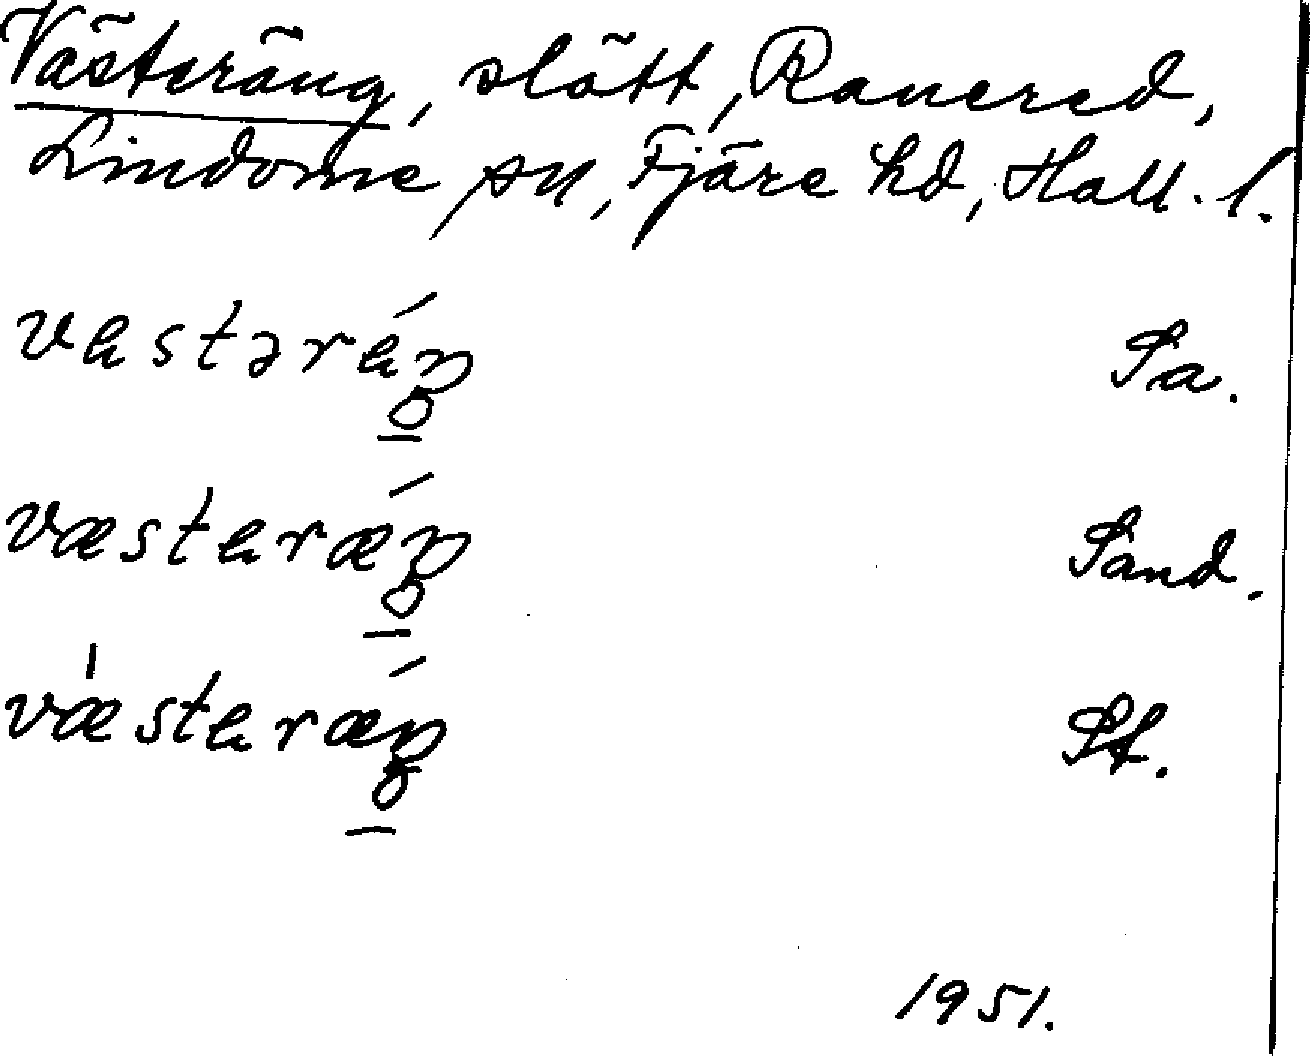 Västeräng, slått, Ranered,
Lindome sn, Fjäre hd, Hall. l.
vastəráŋ Sa.
væstarǽŋ Sand.
væ̀starǽŋ St.
1951.